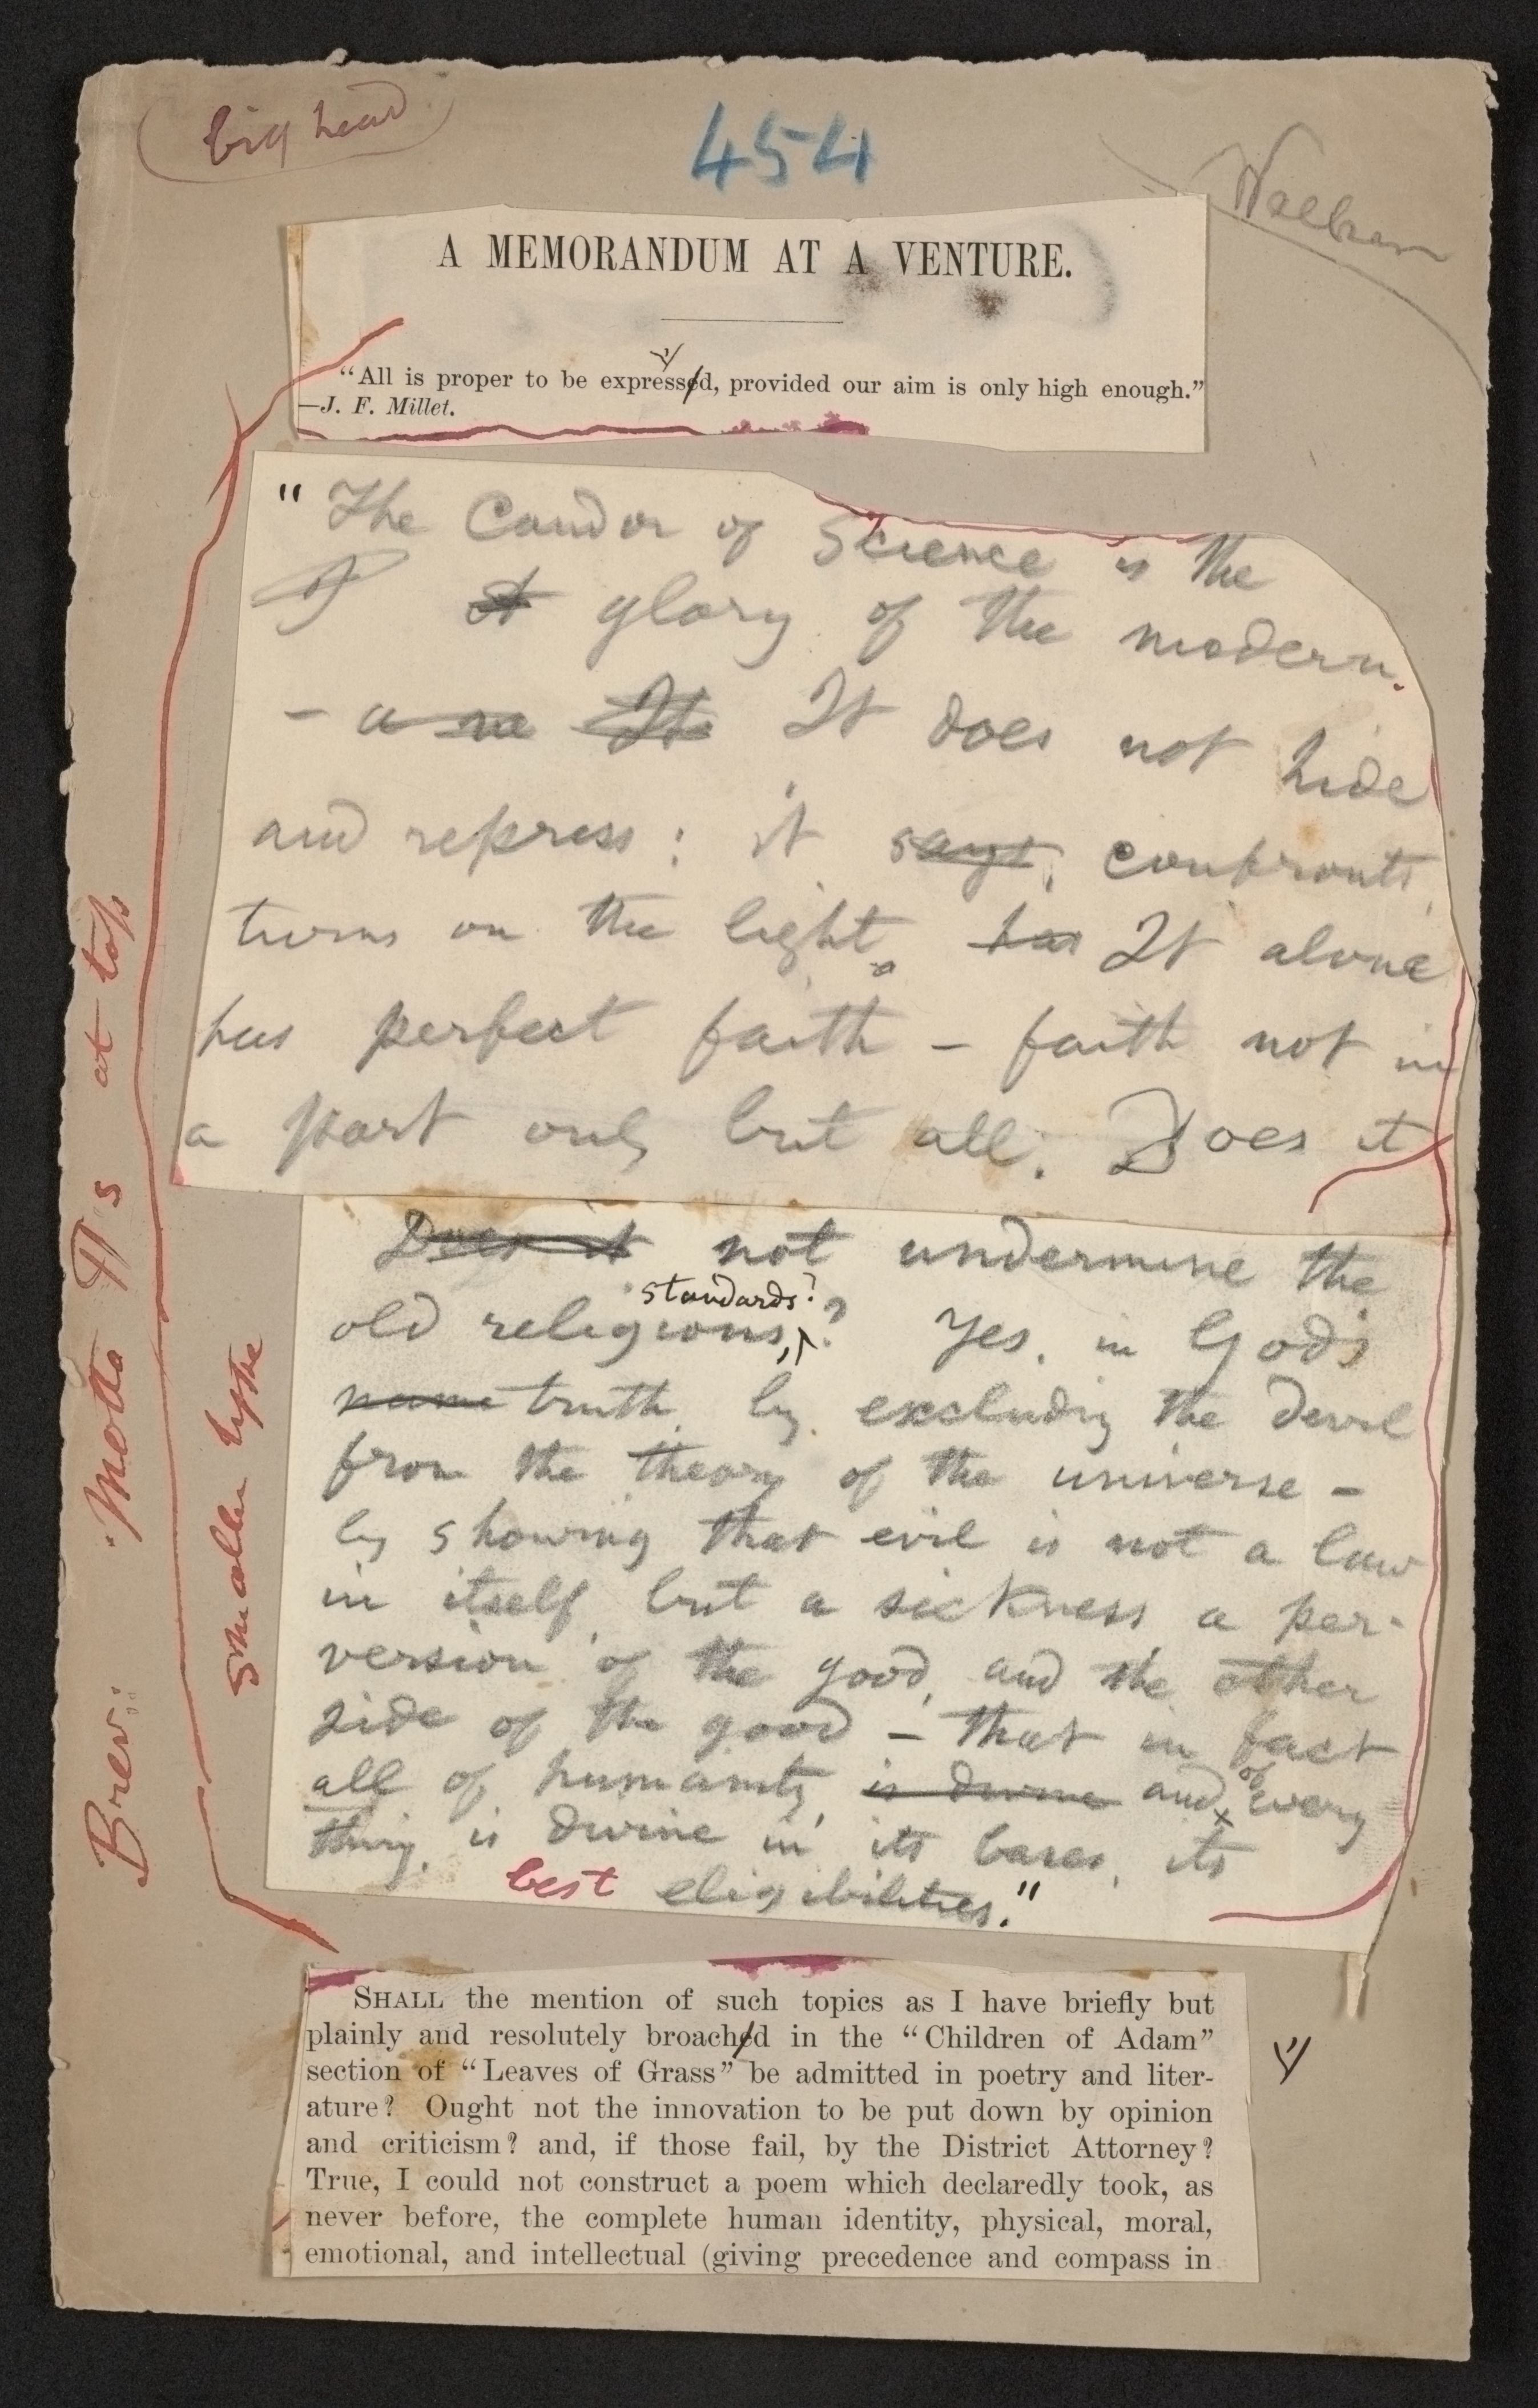 big head
454
A MEMORANDUM AT A VENTURE.
"All is proper to be expressed, provided our aim is only high enough."
—J. F. Millet.
"The Candor of Science is the
glory of the modern.
It does not hide
and repress: it says, confronts,
turns on the light. has It alone
has perfect faith – faith not in
a part only but all. Does it
Does it not undermine the
standards?
old religions,? Yes, in God's
name truth, by excluding the devil
from the theory of the universe –
by showing that evil is not a law
in itself, but a sickness, a per-
version of the good, and the other
side of the good – that in fact
all of humanity, is divine and of every
thing, is divine in its bases, its
best eligibilities."
Brev: Motto ¶s at top
smaller type
SHALL the mention of such topics as I have briefly but
plainly and resolutely broached in the "Children of Adam"
section of "Leaves of Grass" be admitted in poetry and liter-
ature? Ought not the innovation to be put down by opinion
and criticism? and, if those fail, by the District Attorney?
True, I could not construct a poem which declaredly took, as
never before, the complete human identity, physical, moral,
emotional, and intellectual (giving precedence and compass in